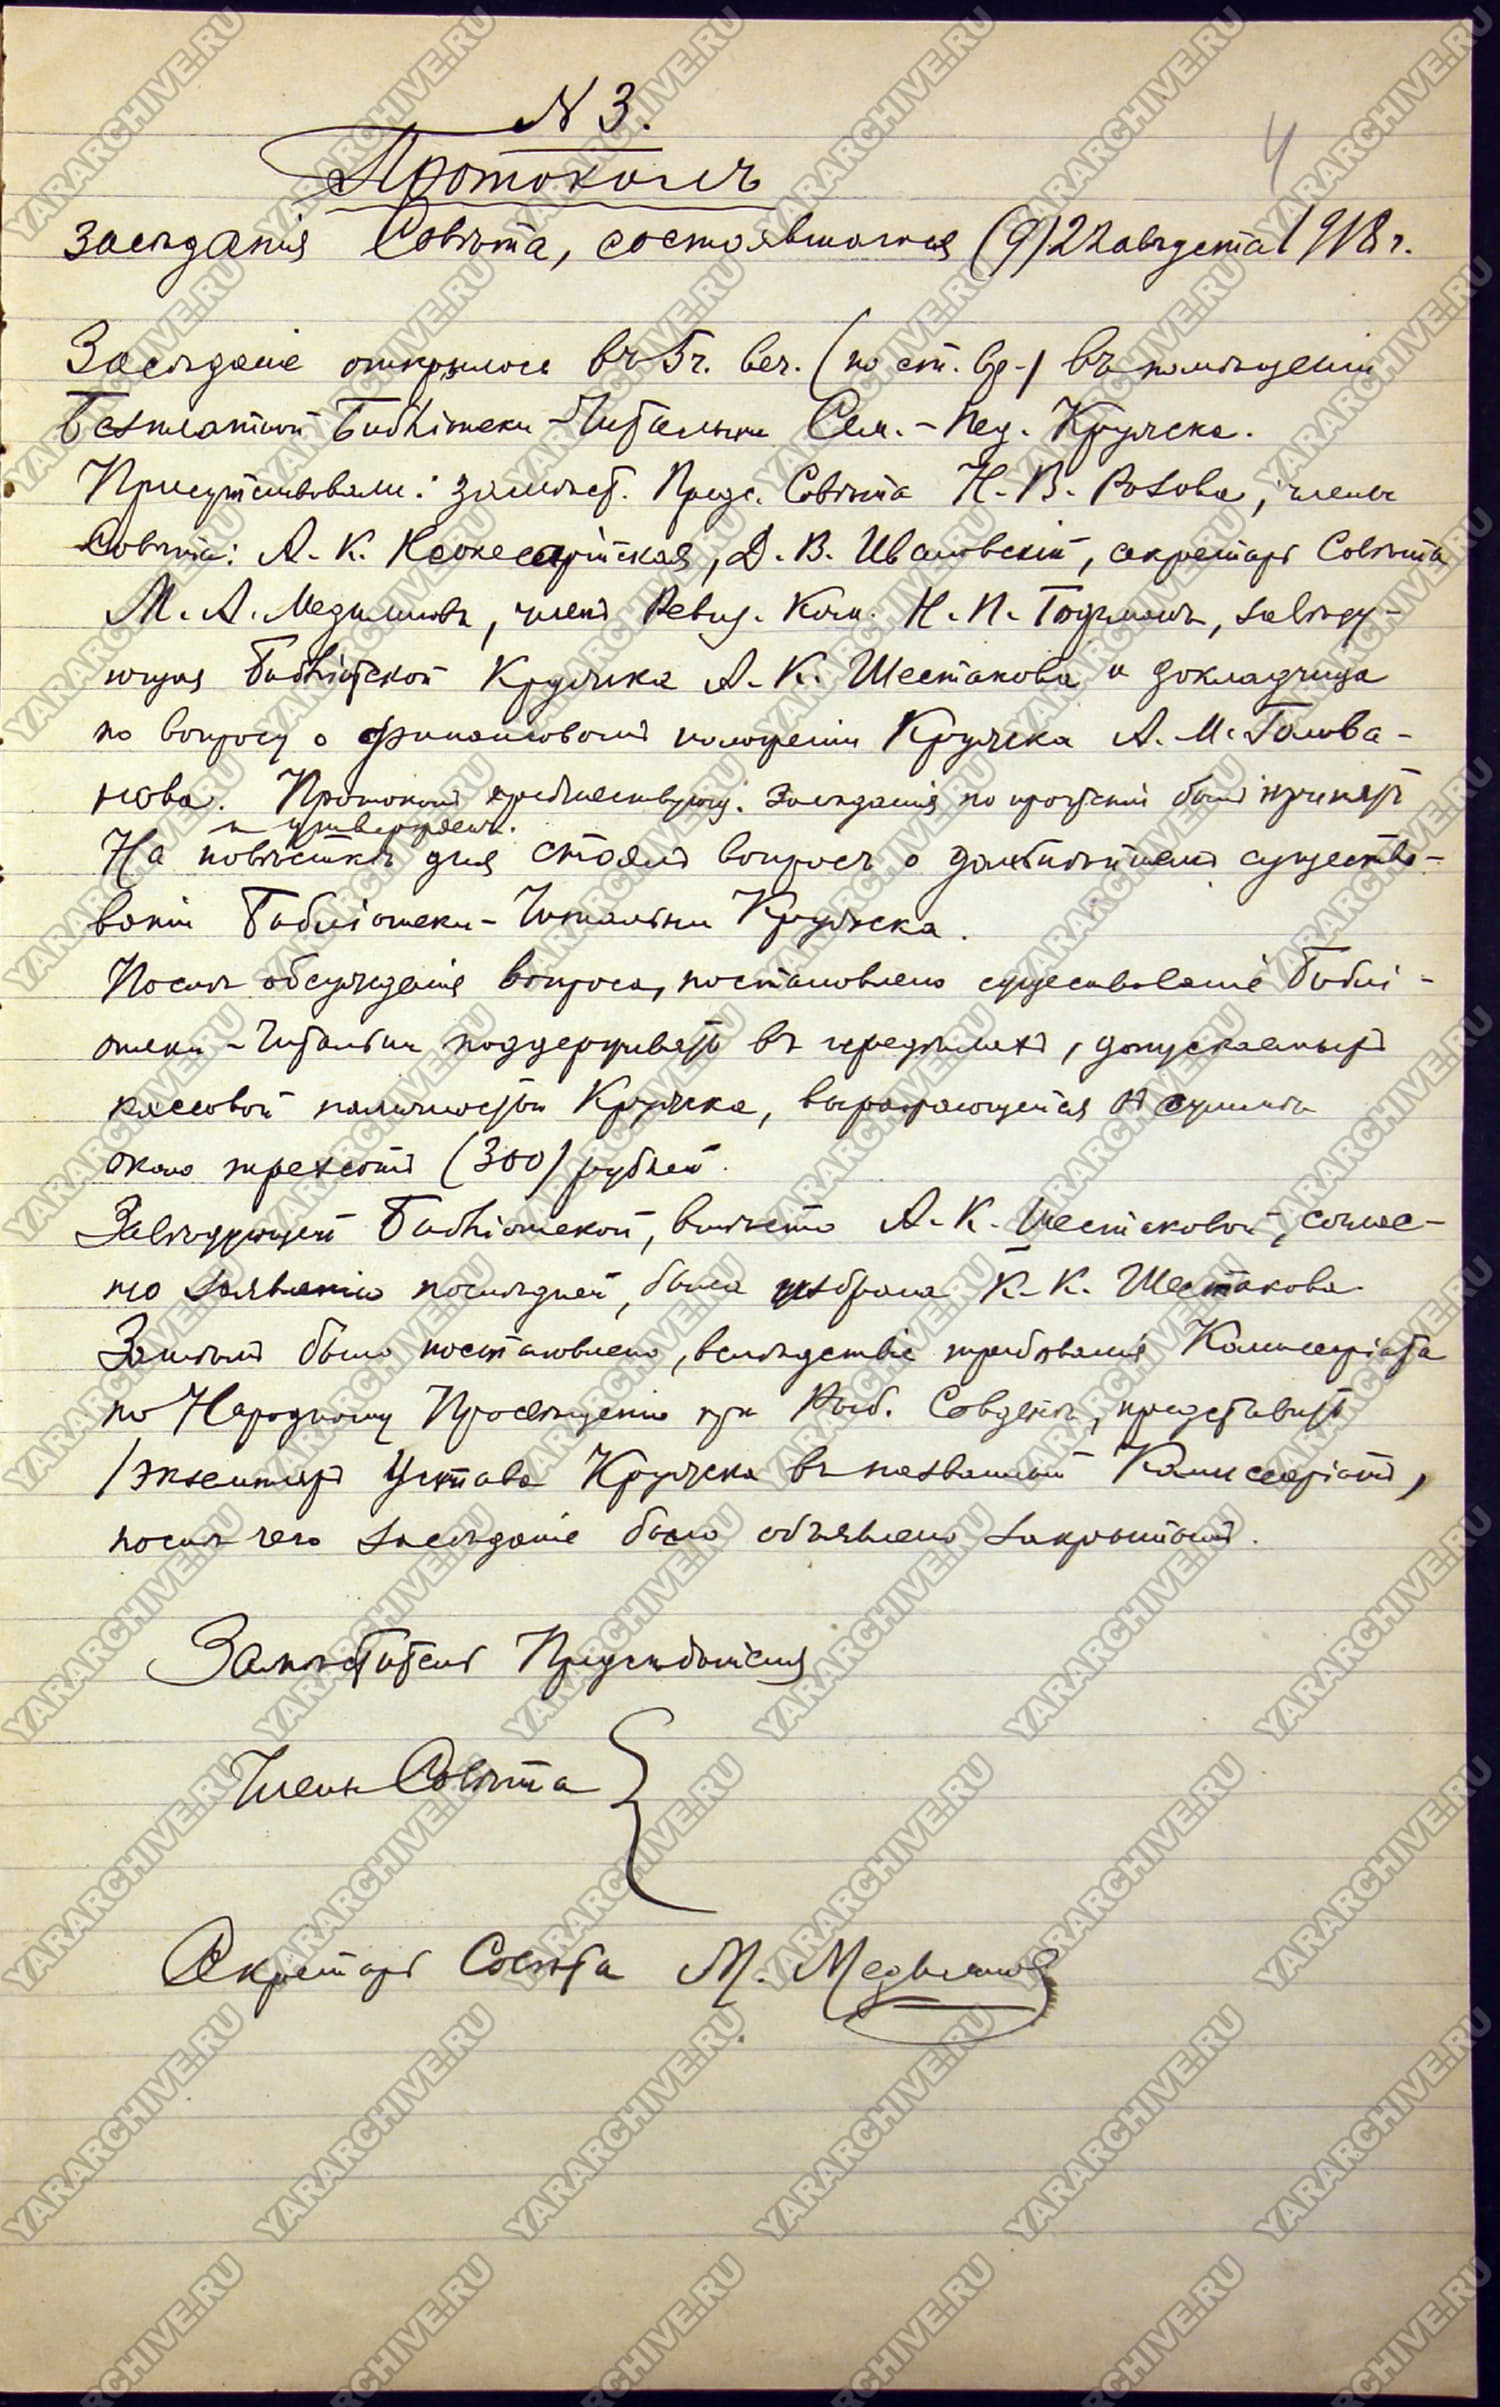 N 3.
4
Протоколъ
засѣданія Совѣта, состоявшагося (9) 22 августа 1918 г.
Засѣданіе открылось въ 5 ч. веч. (по ст. вр.) въ помѣщеніи
Безплатной Библіотеки-Читальни Сем.-Пед. Кружка.
Присутствовали: замѣст. Предс. Совѣта Н. В. Розова, члены
Совѣта: А. К. Неокесарійская, Д. В. Ивановскій, секретарь Совѣта
М. А. , членъ Ревиз. Ком. Н. П. , завѣду-
ющая Библіотекой Кружка А. К. Шестакова и докладчица
по вопросу о финансовомъ положеніи Кружка А. М. Голова-
нова. Протоколъ предшествующ. засѣданія по прочтеніи былъ принятъ
и утвержденъ.
На повѣсткѣ дня стоялъ вопросъ о дальнѣйшемъ существо-
ваніи Библіотеки-Читальни Кружка.
Послѣ обсужденія вопроса, постановлено существованіе Библі-
отеки-Читальни поддерживать въ предѣлахъ, допускаемыхъ
кассовой наличностью Кружка, выражающейся въ суммѣ
около трехсотъ (300) рублей.
Завѣдующей Библіотекой, вмѣсто А. К. Шестаковой, соглас-
но заявленію послѣдней, была избрана К. К. Шестакова.
Затѣмъ было постановлено, вслѣдствіе требованія Комиссаріата
по Народному Просвѣщенію при Рыб. Совдепѣ, представить
1 экземпляръ Устава Кружка въ названный Комиссаріатъ,
послѣ чего засѣданіе было объявлено закрытымъ.
Замѣститель Предсѣдателя
Члены Совѣта
Секретарь Совѣта М.
YARARCHIVE.RU